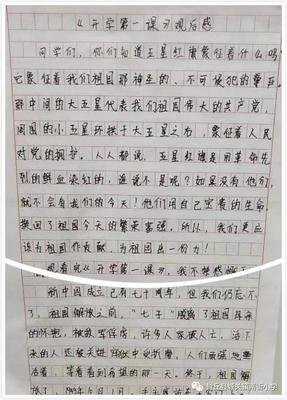 《开学第一课》观后感
同学们，你们知道五星红旗象征着什么吗？
它象征着我们祖国那神圣的、不可侵犯的尊严。
那中间的大五星代表我们祖国伟大的共产党，
周围的小五星环拱于大五星之右，象征着人民
对党的拥护。人人都说，五星红旗是用革命先烈
的鲜血染红的，谁说不是呢？如果没有他们，
就不会有我们的今天！他们用自己宝贵的生命
换回了祖国今天的繁荣富强。所以，我们更应
该为祖国作贡献，为祖国出一份力！
观看完《开学第一课》，我不禁感慨
新中国成立已有七十周年，但我们仍忘不
了，祖国解放之前，"七子"脱离了祖国母亲
的怀抱，被敌军俘虏，许多人家破人亡，活下
来的人还被关进牢狱中受折磨，人们无疆地
活着，等着看到希望的那一天。终于，祖国解
放了，1949年
@封丘县城关镇南街小学